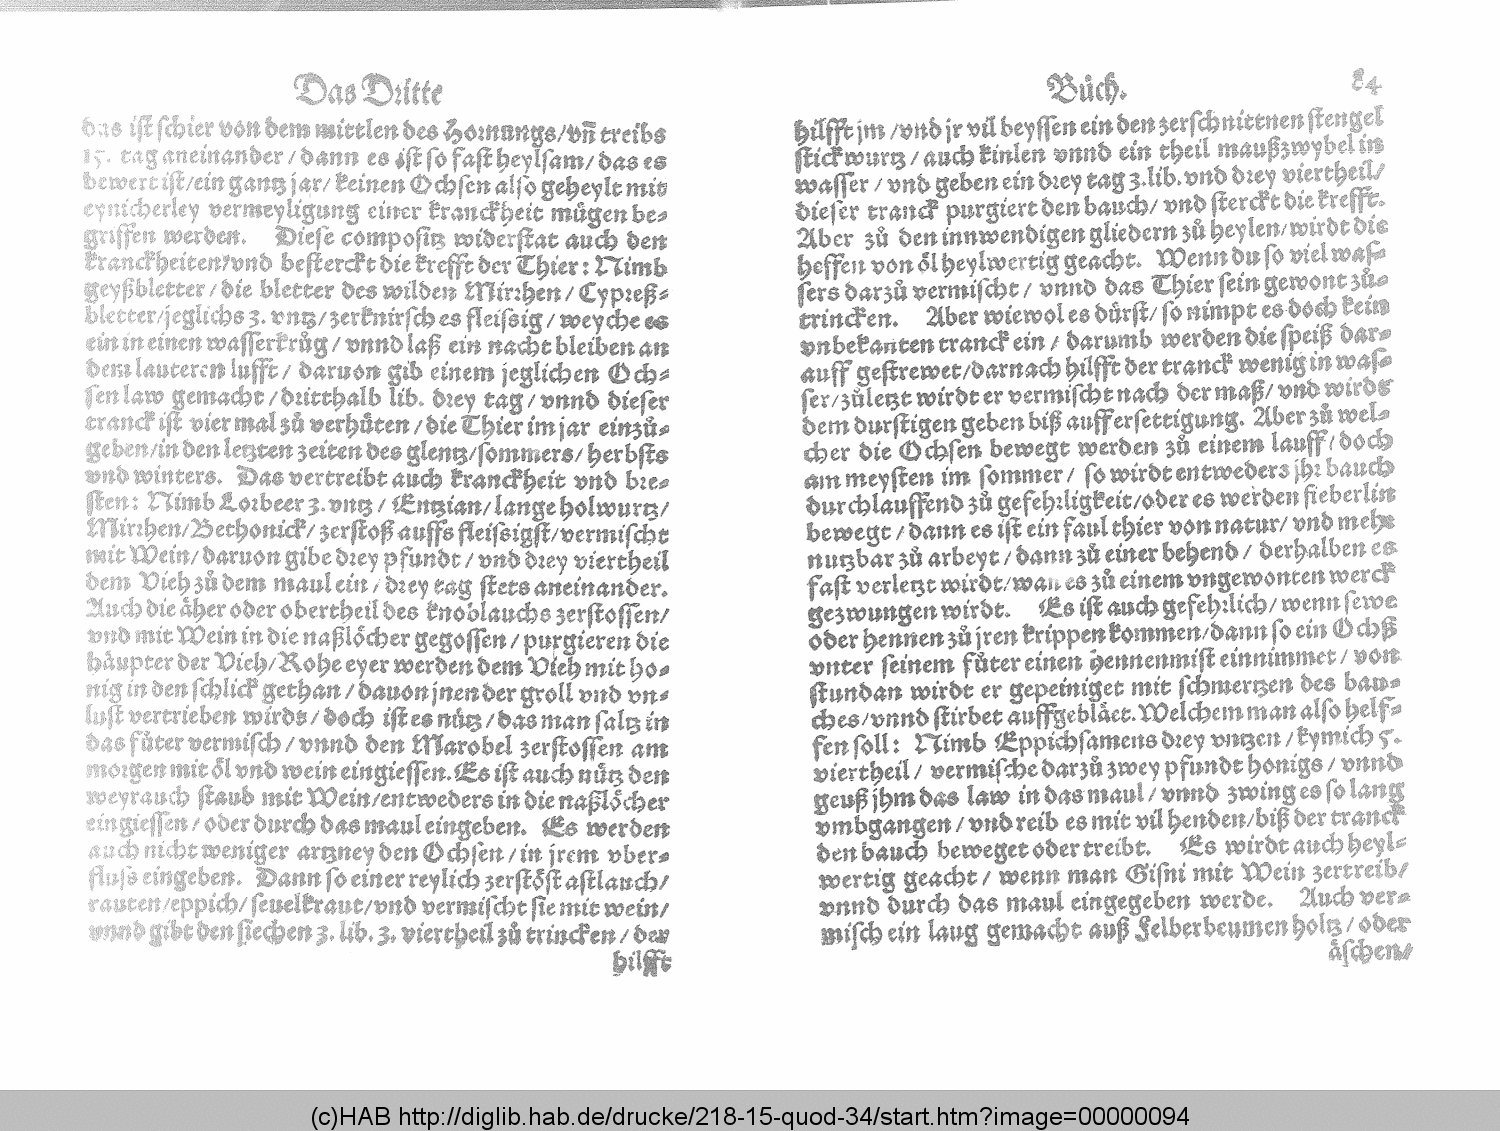 Das Dritte
das iſt ſchier von dem mittlen des Hornungs/vñ treibs
15. tag aneinander / dann es iſt ſo faſt heylſam/ das es
bewert iſt/ein gantz jar/ keinen Ochſen alſo geheylt mit
eynicherley vermeyligung einer kranckheit mügen be⸗
griffen werden. Dieſe compoſitz widerſtat auch den
kranckheiten/vnd beſterckt die krefft der Thier: Nimb
geyßbletter / die bletter des wilden Mirrhen/ Cypreß⸗
bletter/jeglichs 3. vntz/ zerknirſch es fleiſsig / weyche es
ein in einen waſſerkrůg / vnnd laß ein nacht bleiben an
dem lauteren lufft / daruon gib einem jeglichen Och⸗
ſen law gemacht / dritthalb lib. drey tag / vnnd dieſer
tranck iſt vier mal zů verhůten / die Thier im jar einzů⸗
geben/in den letzten zeiten des glentz/ſommers/ herbſts
vnd winters. Das vertreibt auch kranckheit vnd bre⸗
ſten: Nimb Lorbeer 3. vntz / Entzian/ lange holwurtz/
Mirrhen/Bethonick/ zerſtoß auffs fleiſsigſt/vermiſcht
mit Wein/ daruon gibe drey pfundt / vnd drey viertheil
dem Vieh zů dem maul ein / drey tag ſtets aneinander.
Auch die äher oder obertheil des knoblauchs zerſtoſſen/
vnd mit Wein in die naßlöcher gegoſſen / purgieren die
häupter der Vieh/Rohe eyer werden dem Vieh mit ho⸗
nig in den ſchlick gethan / dauon jnen der groll vnd vn⸗
luſt vertrieben wirds/ doch iſt es nütz / das man ſaltz in
das fůter vermiſch / vnnd den Marobel zerſtoſſen am
morgen mit öl vnd wein eingieſſen. Es iſt auch nütz den
weyrauch ſtaub mit Wein/entweders in die naßlöcher
eingieſſen / oder durch das maul eingeben. Es werden
auch nicht weniger artzney den Ochſen / in jrem vber⸗
fluſs eingeben. Dann ſo einer reylich zerſtöſt aſtlauch/
rauten/eppich/ ſeuelkraut/vnd vermiſcht ſie mit wein/
vnnd gibt den ſiechen 3. lib. 3. viertheil zů trincken / der
hilfft
Bůch. 84
hilfft jm /vnd jr vil beyſſen ein den zerſchnittnen ſtengel
ſtickwurtz / auch kinlen vnnd ein theil maußzwybel in
waſſer / vnd geben ein drey tag 3.lib. vnd drey viertheil/
dieſer tranck purgiert den bauch/ vnd ſterckt die krefft.
Aber zů den innwendigen gliedern zů heylen/wirdt die
heffen von öl heylwertig geacht. Wenn du ſo viel waſ⸗
ſers darzů vermiſcht / vnnd das Thier ſein gewont zů⸗
trincken. Aber wiewol es dürſt/ ſo nimpt es doch kein
vnbekanten tranck ein / darumb werden die ſpeiß dar⸗
auff geſtrewet/darnach hilfft der tranck wenig in waſ⸗
ſer/zůletzt wirdt er vermiſcht nach der maß/ vnd wirds
dem durſtigen geben biß auff erſettigung. Aber zů wel⸗
cher die Ochſen bewegt werden zů einem lauff/ doch
am meyſten im ſommer / ſo wirdt entweders jhr bauch
durchlauffend zů gefehrligkeit/oder es werden fieberlin
bewegt / dann es iſt ein faul thier von natur/ vnd mehr
nutzbar zů arbeyt / dann zů einer behend / derhalben es
faſt verletzt wirdt/wan es zů einem vngewonten werck
gezwungen wirdt. Es iſt auch gefehrlich/ wenn ſewe
oder hennen zů jren krippen kommen/dann ſo ein Ochß
vnter ſeinem fůter einen hennenmiſt einnimmet / von
ſtundan wirdt er gepeiniget mit ſchmertzen des bau⸗
ches/vnnd ſtirbet auffgeblaͤet. Welchem man alſo helf⸗
fen ſoll: Nimb Eppichſamens drey vntzen / kymich 5.
viertheil / vermiſche darzů zwey pfundt honigs / vnnd
geuß jhm das law in das maul / vnnd zwing es ſo lang
vmbgangen / vnd reib es mit vil henden/biß der tranck
den bauch beweget oder treibt. Es wirdt auch heyl⸗
wertig geacht / wenn man Giſni mit Wein zertreib/
vnnd durch das maul eingegeben werde. Auch ver⸗
miſch ein laug gemacht auß Felberbeumen holtz / oder
äſchen/
(c)HAB http://diglib.hab.de/drucke/218-15-quod-34/start.htm?image=00000094